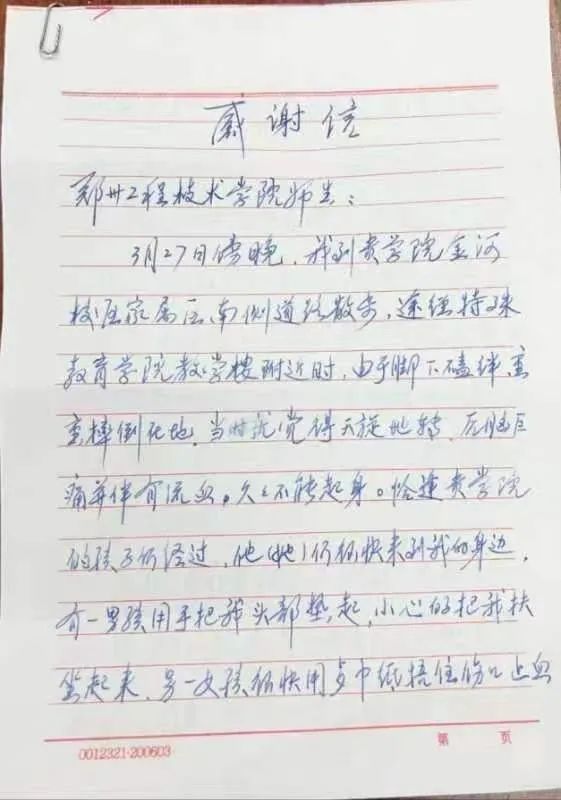 感谢信
郑州工程技术学院师生：
3月27日傍晚，我到贵学院金河
校区家属区南侧道路散步，途经特殊
教育学院教学楼附近时，由于脚下磕绊，重
重摔倒在地。当时我觉得天旋地转，左腿巨
痛并伴有流血，久久不能起身。恰逢贵学院
的孩子们经过，他（她）们很快来到我的身边，
有一男孩用手把我头部垫起，小心的把我扶
坐起来，另一女孩很快用多巾纸捂住伤口止血
0012321·200603
第 页